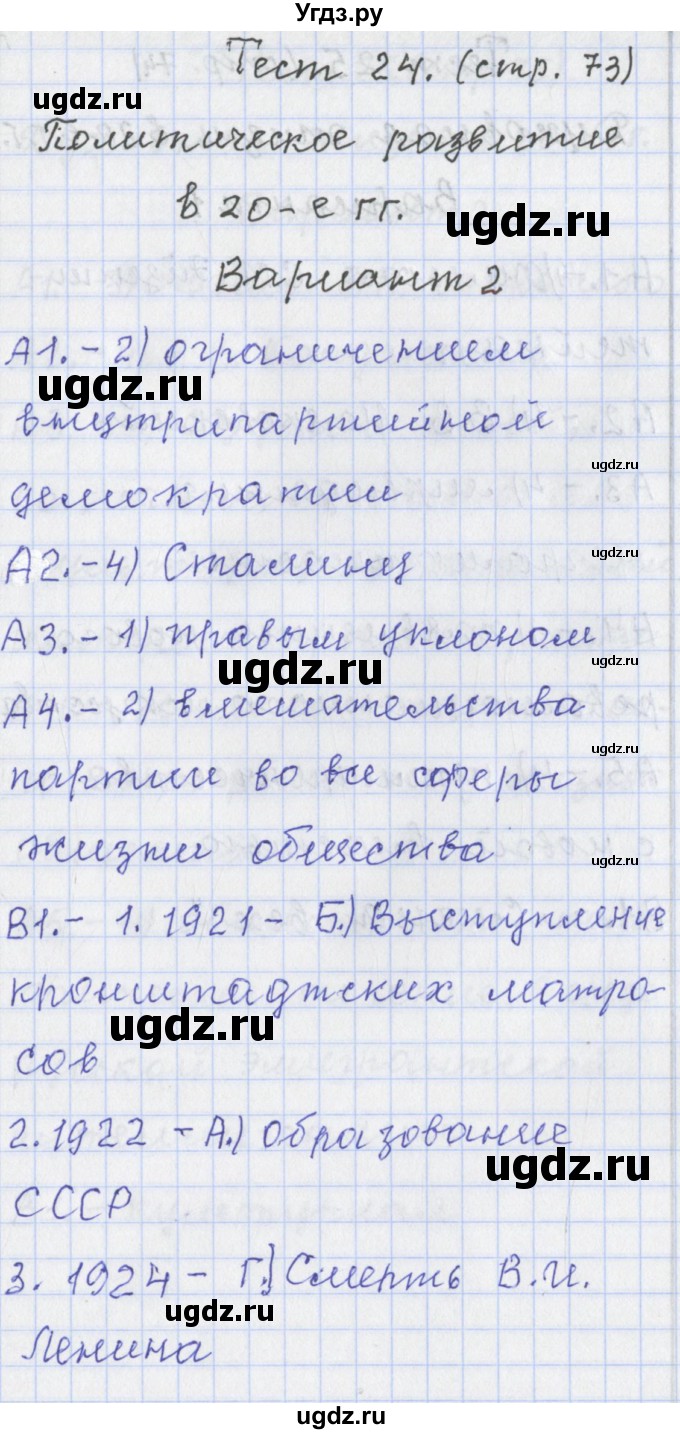 Угдз.ру
Тест 24. (стр. 73)
ugdz.ru
Политическое развитие
в 20-е гг.
ugdz.ru
Вариант 2
А1. - 2) ограничением
ugdz.ru
внутрипартийной
ugdz.ru
демократии
А2. - 4) Сталины
ugdz.ru
А3. - 1) правым уклоном
ugdz.ru
ugdz.ru
А4. - 2) вмешательства
ugdz.ru
партии во все сферы
жизни общества
ugdz.ru
В1. - 1. 1921 - Б.) Выступление
кронштадтских матро-
ugdz.ru
сов
2. 1922 - А.) образование
ugdz.ru
СССР
3. 1924 - Г.) Смерть В.И.
ugdz.ru
Ленина
ugdz.ru